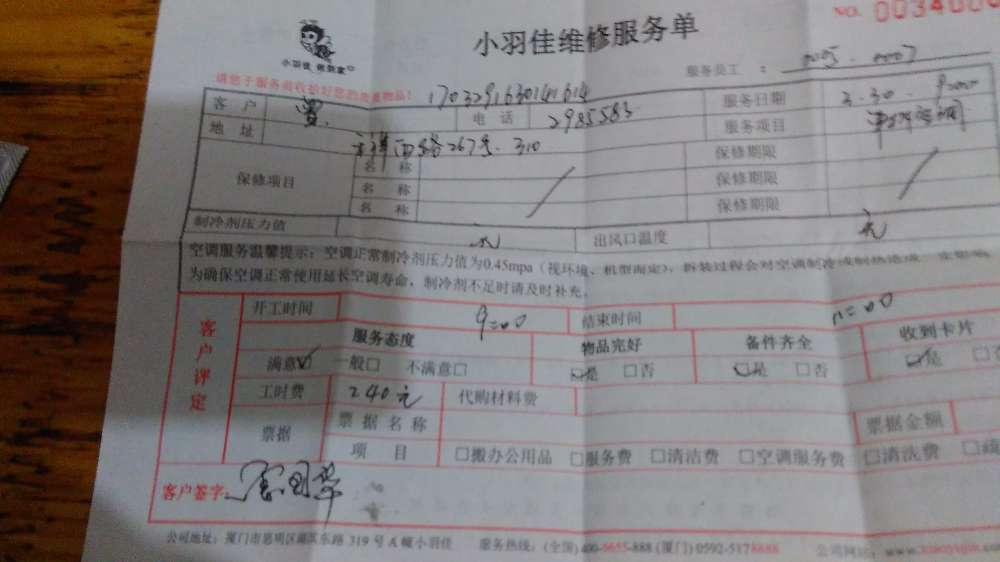 NO. 003400
小羽佳维修服务单
小羽佳 做到家
服务员工 : 0005 . 0007
请您于服务前收拾好您的贵重物品!
1703291630141614
客户 电话 2985583 服务日期 3.30. 9:00
地址 267号. 310 服务项目
保修项目 名称 保修期限
名称 保修期限
名称 保修期限
制冷剂压力值 无 出风口温度 无
空调服务温馨提示:空调正常制冷剂压力值为0.45mpa(视环境、机型而定),拆装过程会对空调制冷或制热造成一定影响
为确保空调正常使用延长空调寿命,制冷剂不足时请及时补充。
客户评定
开工时间 9=00 结束时间 11=00
服务态度 物品完好 备件齐全 收到卡片
满意☑ 一般□ 不满意□ ☑是 □否 ☑是 □否 ☑是 □否
工时费 240元 代购材料费
票据 票据名称 票据金额
项目 □搬办公用品 □服务费 □清洁费 □空调服务费 □清洗费
客户签字:
公司地址:厦门市思明区湖滨东路 319 号 A 幢小羽佳 服务热线:(全国)400-6655-888 (厦门) 0592-5178888 公司网站: www.xiaoyujia.com